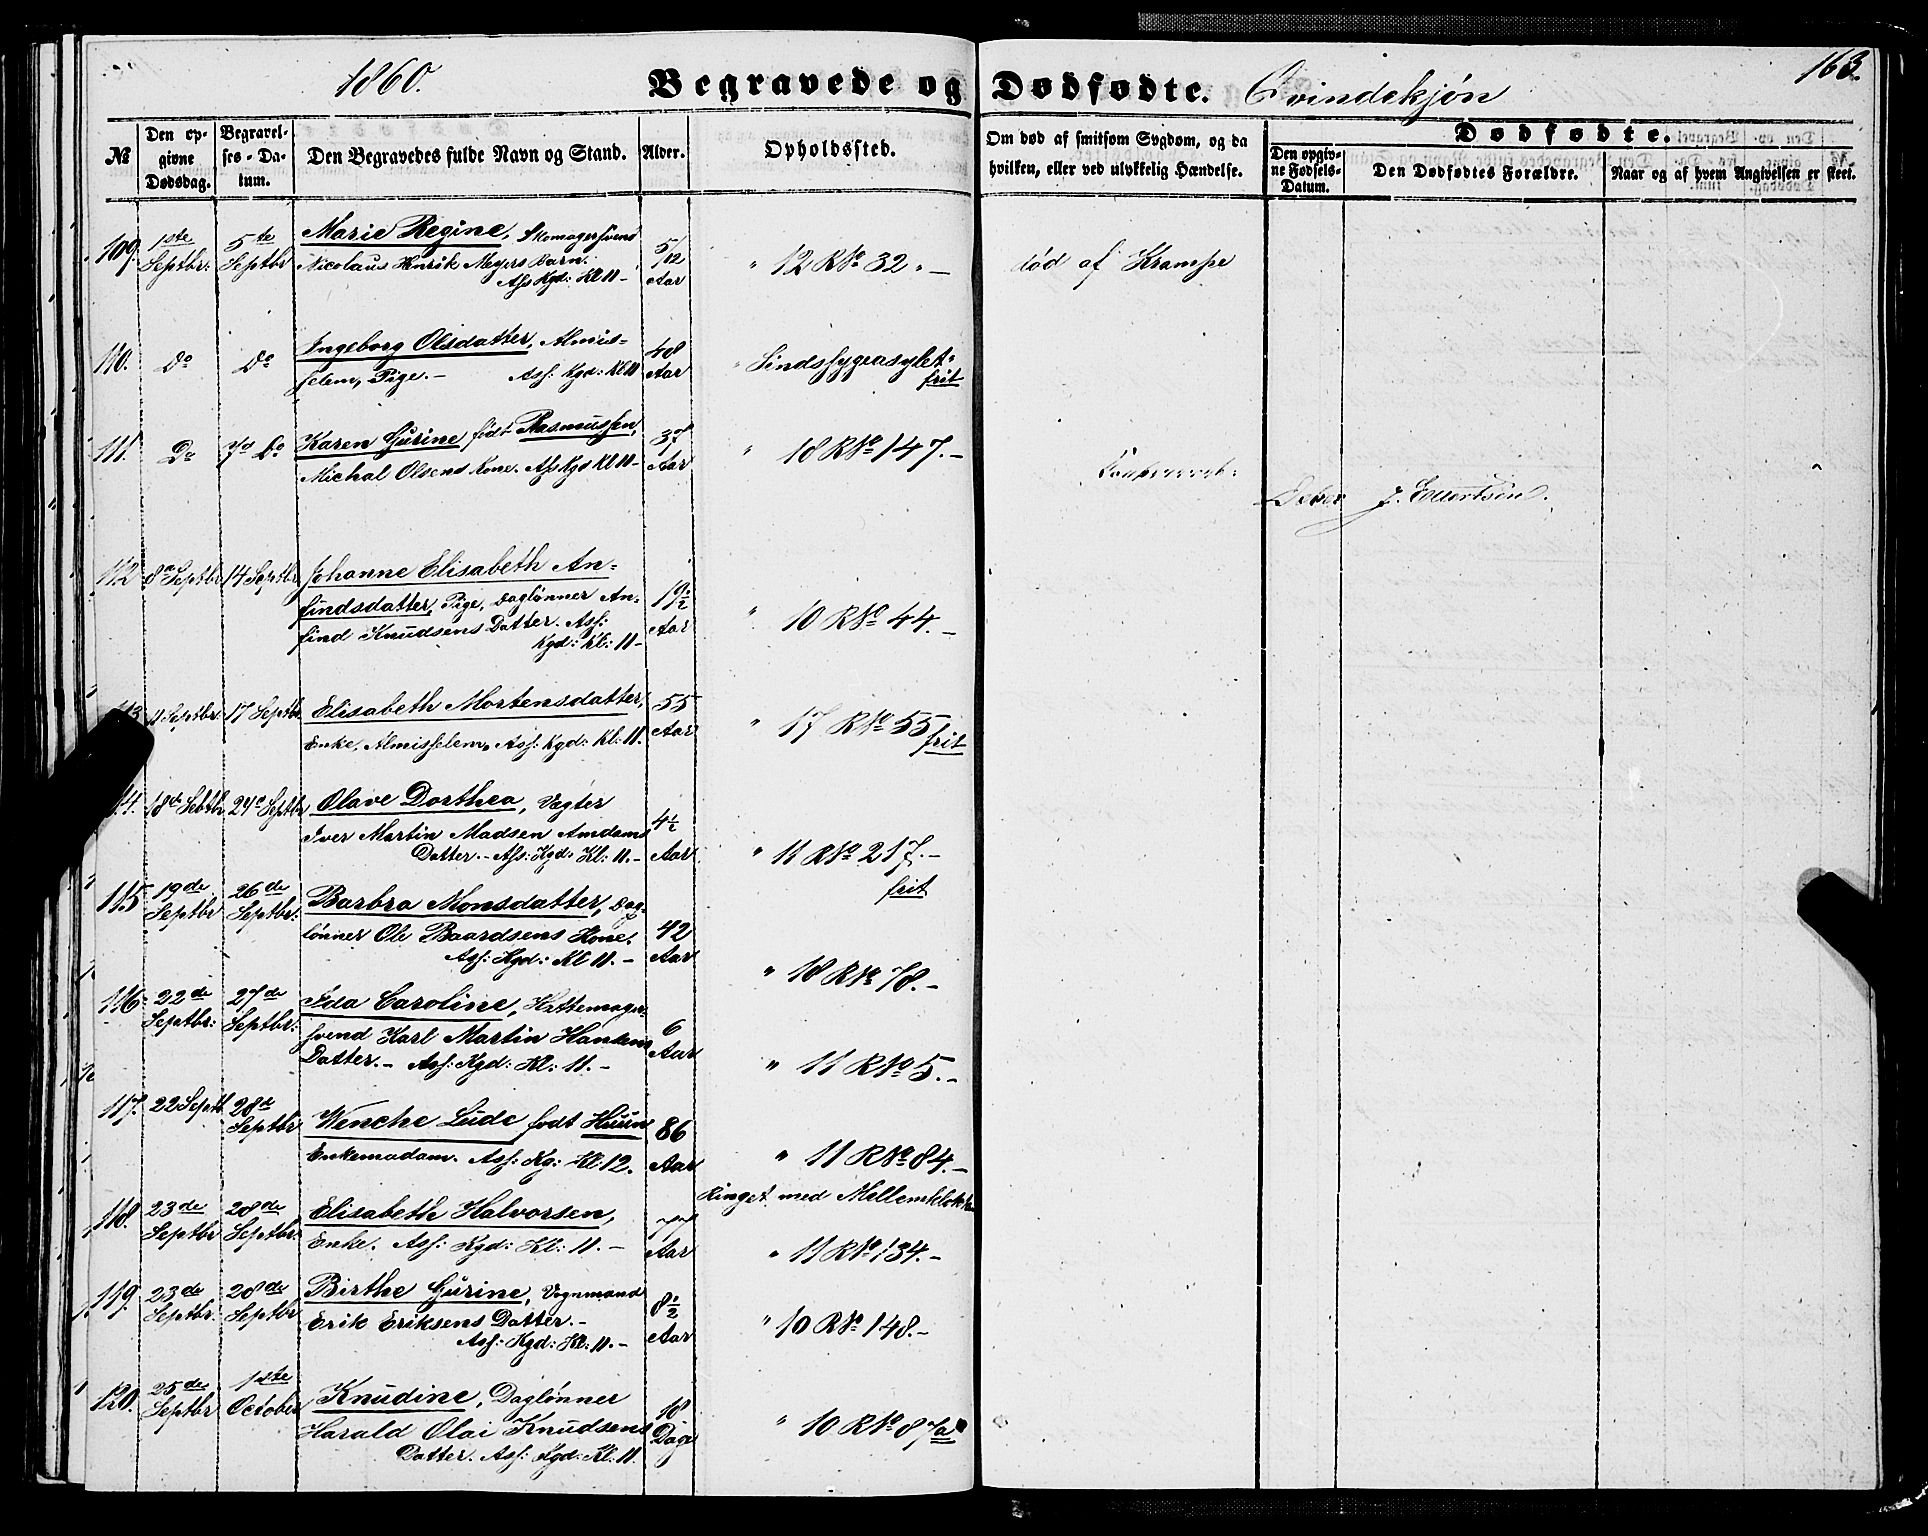 1860.
Begravede og Dødfødte. Qvindekjøn
163.
№
Den opgivne Dødsdag.
Begravelses-Datum.
Den Begravedes fulde Navn og Stand.
Alder.
Opholdssted.
Om død af smitsom Sygdom, og da hvilken, eller ved ulykkelig Hændelse.
Dødfødte.
Den opgivne Fødsels-Datum.
Den Dødfødtes Forældre.
Naar og af hvem Angivelsen er skeet.
109. 1ste Septbr: 5te Septbr Marie Regine, Skomagersvend
Nicolaus Henrik Meyers Barn.
Ass Kgd: Kl 11 –
5/12 Aar
" 12 R № 32 " –
død af Krampe
110. Do Do Ingeborg Olsdatter, Almis=
selem, Pige. – Ass: Kgd: Kl 11
48 Aar
" Sindssygeasylet "
frit
111. Do 7de Do Karen Gurine født Rasmussen,
Michal Olsens Kone. Ass Kgd Kl 11 –
37 Aar
" 18 R № 147. –
J. Ellertsen.
112 8de Septbr 14 Septbr Johanne Elisabeth An=
findsdatter, Pige, Daglønner An=
find Knudsens Datter. Ass:
Kgd: Kl: 11 –
19½ Aar
" 10 R № 44. –
113 11 Septbr 17 Septbr Elisabeth Mortensdatter,
Enke, Almisselem. Ass: Kgd: Kl: 11.
55 Aar
" 17 R № 55
frit
114. 18de Sebtbr 24de Septbr Olave Dorthea, Vægter
Iver Martin Madsen Amdams
Datter. – Ass: Kgd: Kl: 11. –
4½ Aar
" 11 R № 217. –
frit
115 19de Septbr 26de Septbr: Barbra Monsdatter, Dag=
lønner Ole Baardsens Kone.
Ass: Kgd: Kl 11. –
42 Aar
" 18 R № 78. –
116. 22de Septbr: 27de Septbr: Ida Caroline, Hattemager=
svend Karl Martin Hansens
Datter. – Ass: Kgd: Kl: 11. –
6 Aar
" 11 R № 5. –
117. 22 Septb 28de Septbr Wenche Lude født Huun
Enkemadam. Ass: Kg: Kl: 12.
86 Aar
" 11 R № 84. –
Ringet med Mellemklokken
118. 23de Septbr 28de Septbr: Elisabeth Halvorsen,
Enke. Ass: Kgd: Kl: 11. –
77 Aar
" 11 R № 134. –
119. 23de Septbr: 28de Septbr Birthe Gurine, Vognmand
Erik Eriksens Datter. –
Ass: Kgd: Kl: 11. –
8½ Aar
" 10 R № 148. –
120. 25de Septbr 1ste October Knudine, Daglønner
Harald Olai Knudsens
Datter. Ass: Kgd: Kl. 11.
18 Dage
" 10 R № 87a